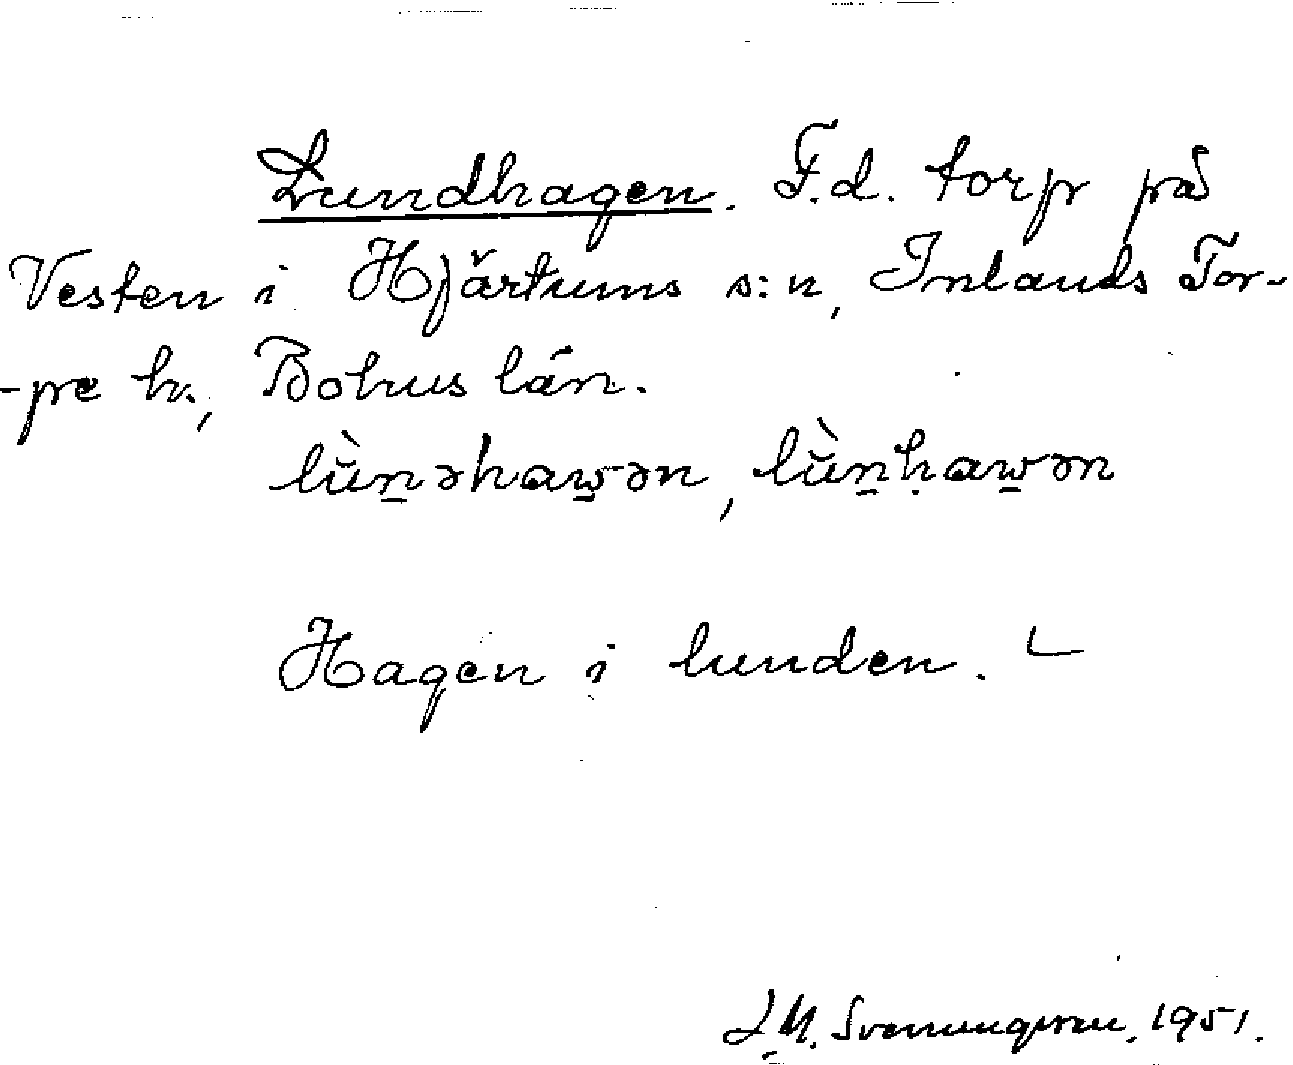 Lundhagen. F.d. torp på
Vesten i Hjärtums s:n, Inlands Tor-
-pe h., Bohus län.
lùn̠əhaw̠ən, lùn̠ḥaw̠ən
Hagen i lunden.
J.M. Svenungsson. 1951.